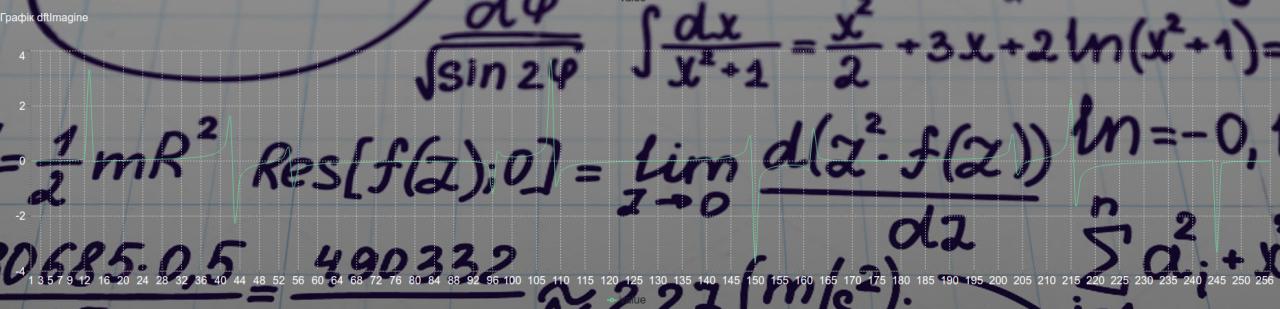 Графік dftImagine
dφ
√sin 2φ
∫ dx / x²+1 = x²/2 + 3x + 2 ln(x²+1) =
4
2
0
-2
-4
= 1/2 mR²
Res[f(z);0] = lim z→0 d(z²·f(z)) / dz
ln = -0,
30685·05 = 490332
(m/s²).
n
∑ a²i + x
1 3 5 7 9 12 16 20 24 28 32 36 40 44 48 52 56 60 64 68 72 76 80 84 88 92 96 100 105 110 115 120 125 130 135 140 145 150 155 160 165 170 175 180 185 190 195 200 205 210 215 220 225 230 235 240 245 250 256
value